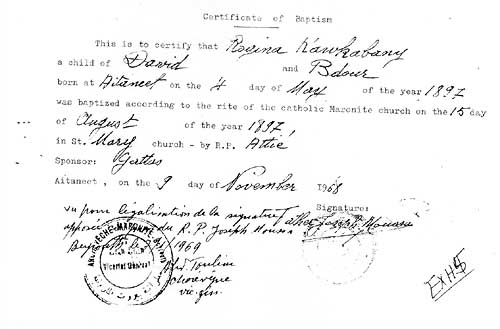 Certificate of Baptism
This is to certify that Rogina Kawkabany
a child of David and Bdour
born at Aitaneet on the 4 day of May of the year 1897
was baptized according to the rite of the catholic Maronite church on the 15 day
of August of the year 1897,
in St. Mary church - by R.P. Attie
Sponsor: Gattas
Aitaneet, on the 9 day of November 1968
Signature:
Father Joseph Mousa
vu pour légalisation de la signature
apposée du R. P. Joseph Mousa
Beyrouth le 1969
Vicariat Général
Chorévêque
vic. gén.
Ex H5